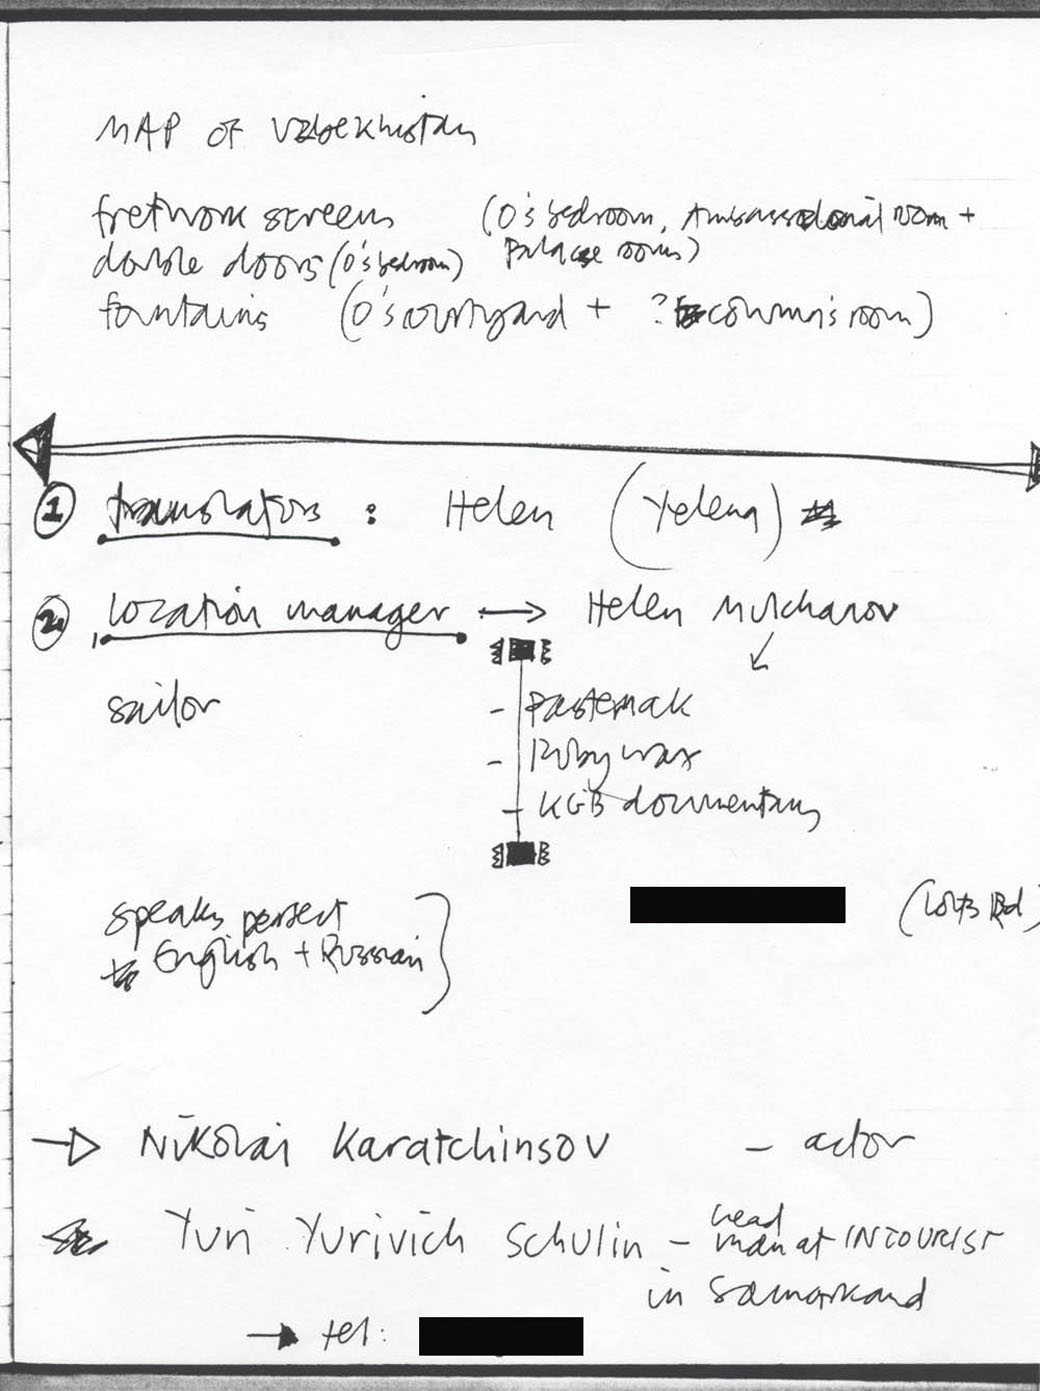 MAP OF Uzbekhistan
fretwork screens (O's bedroom, Ambassadorial room +
double doors (O's bedroom) Palace rooms)
fountains (O's courtyard + ? room)
① translators : Helen (Yelena)
② location manager → Helen Mulchanov
sailor
- Pasternak
- Ruby wax
- KGB documentary
speaks perfect
English + Russian
(Lots Rd)
→ Nikolai Karatchinsov - actor
Yuri Yurivich Schulin - head
man at INTOURIST
in Samarkand
→ tel: